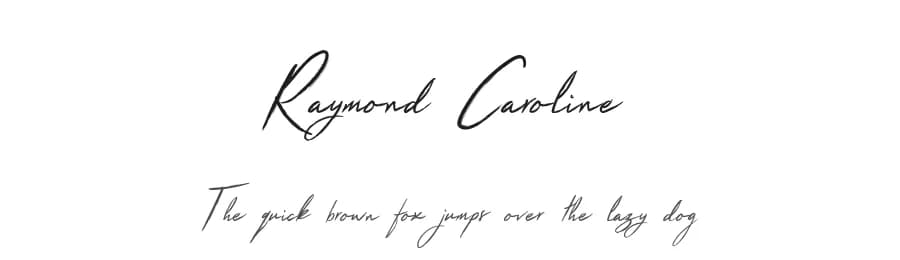 Raymond Caroline
The quick brown fox jumps over the lazy dog